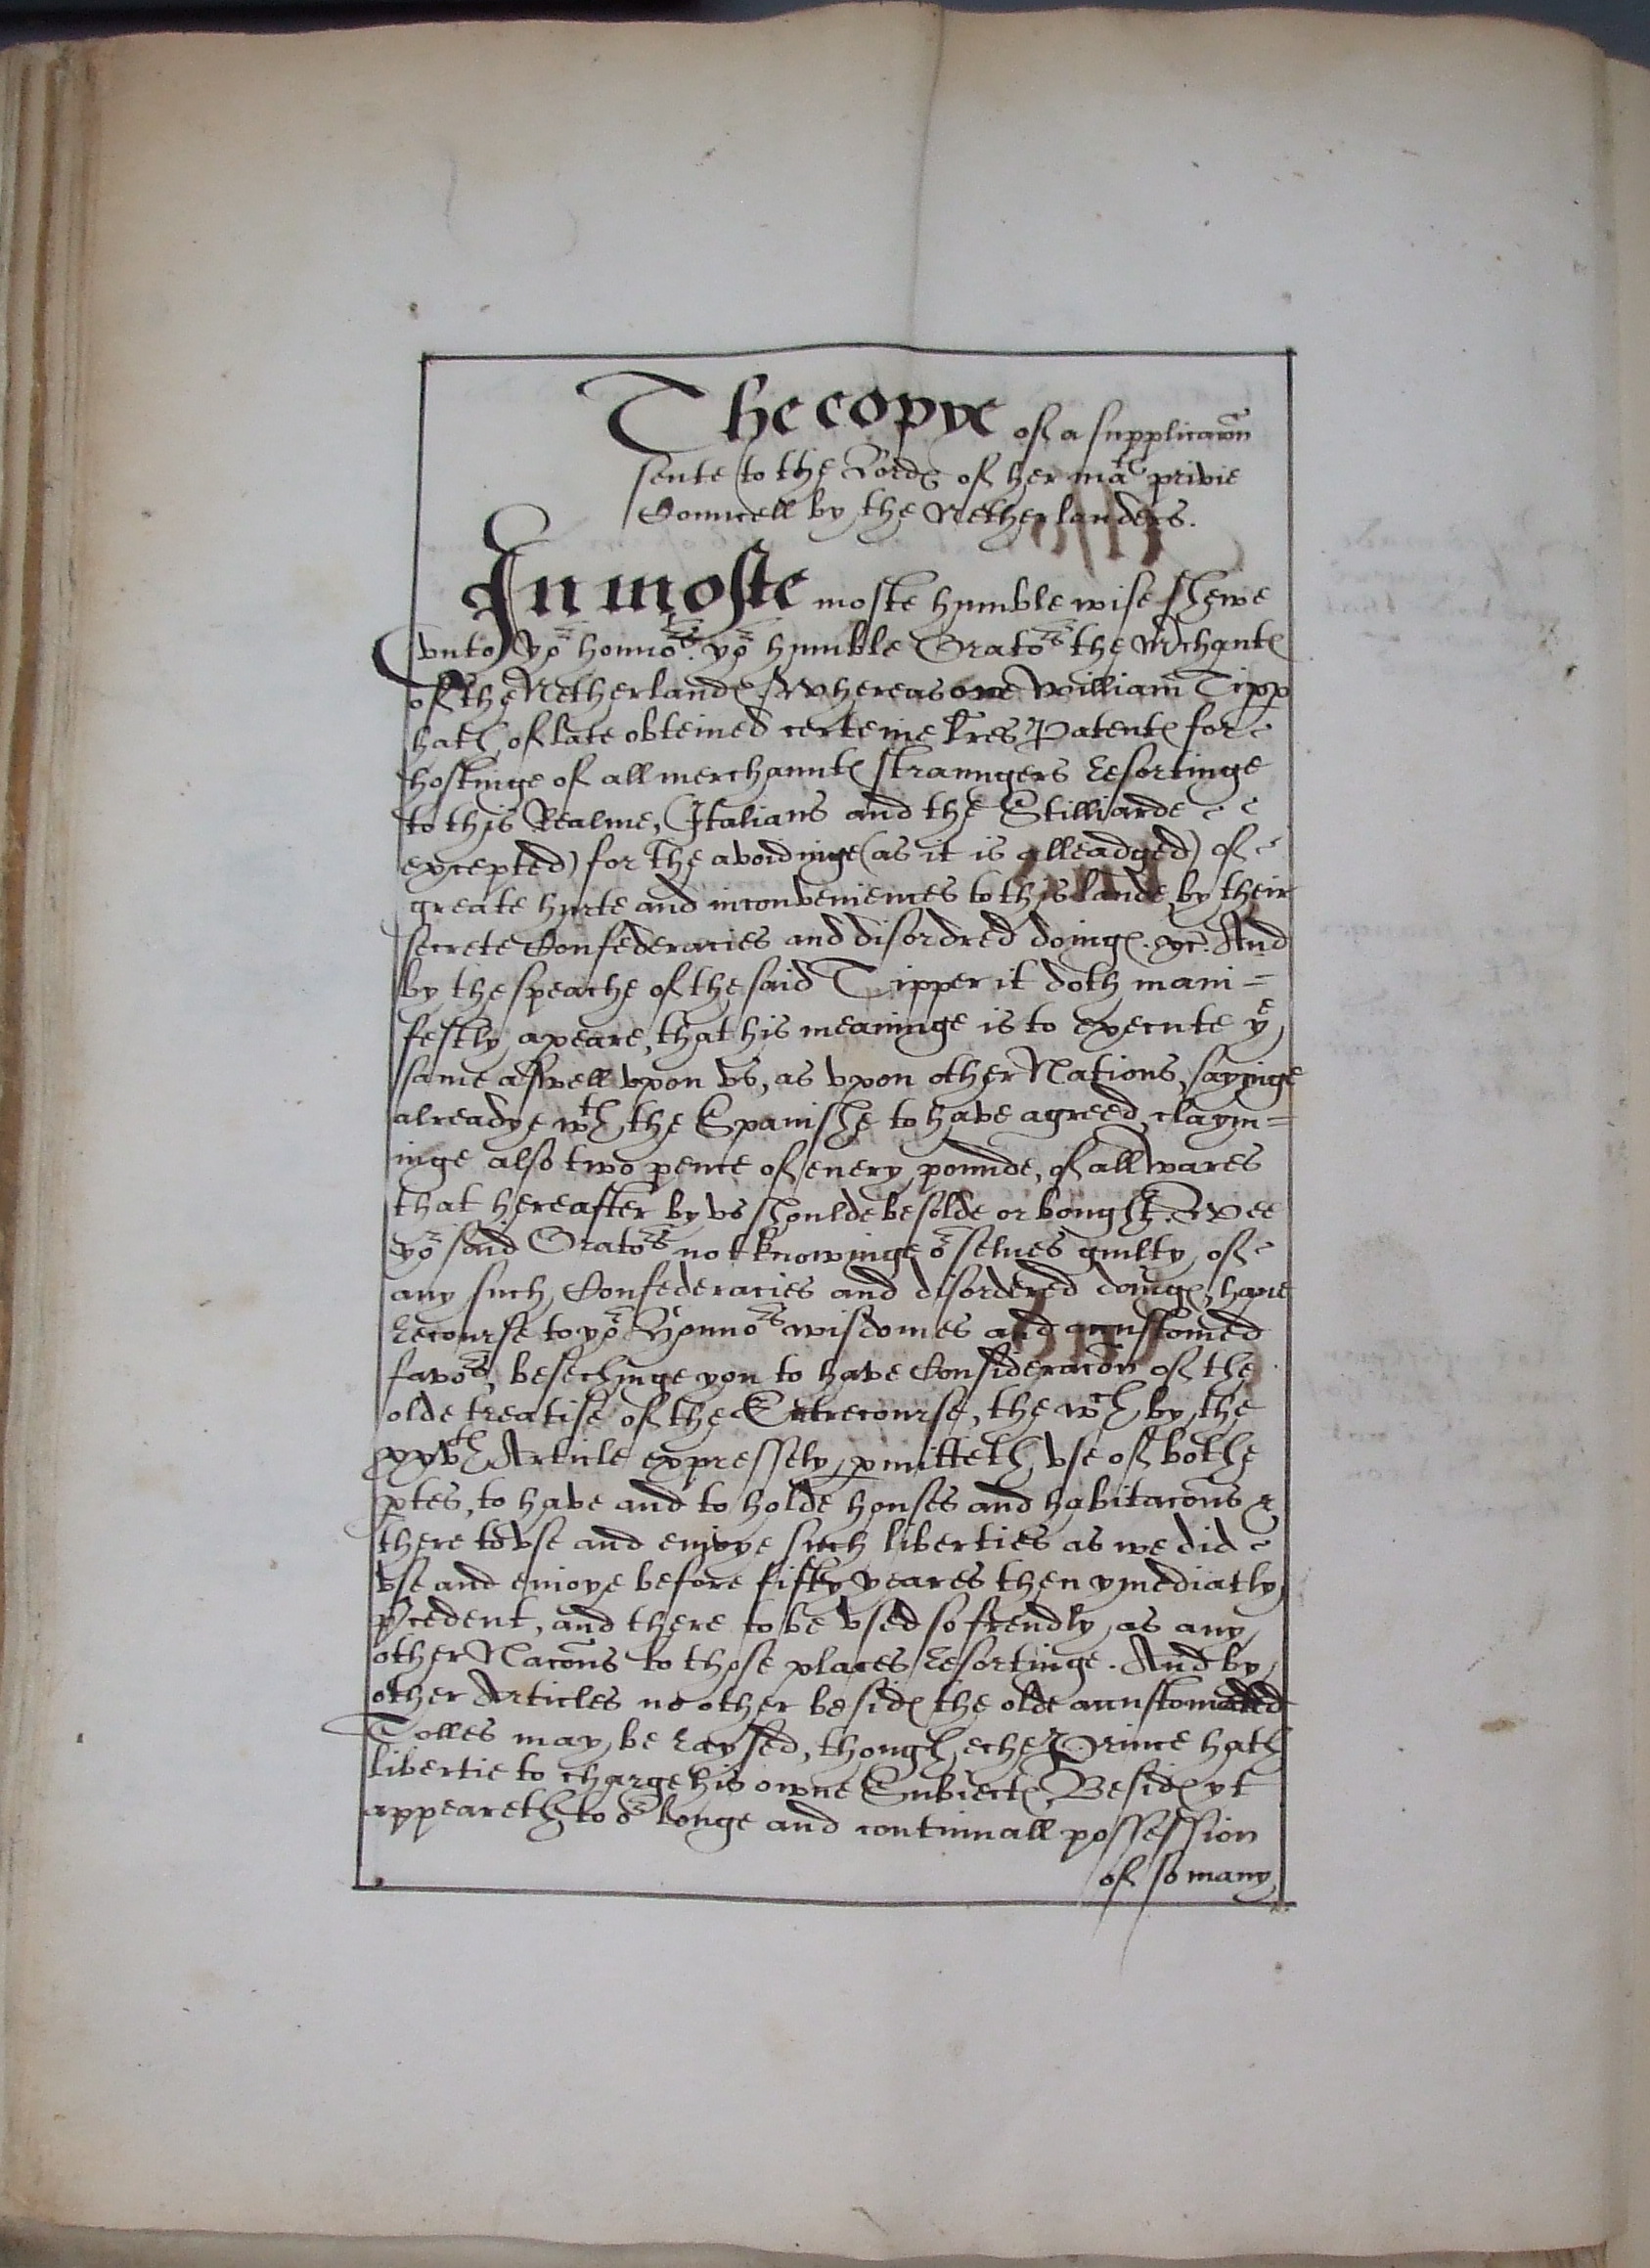 The copye of a supplicacõn
sente to the Lordℯ of her matᵉ privie
Councell by the Netherlanders.
In moste moste humble wise shewe
vnto yoʳ honnoʳˢ. yoʳ humble Oratoʳˢ the Mrchantℯ
of the Netherlandℯ. Whereas one William Tipp
hath of late obteined certeine lr̃es Patentℯ for
hostinge of all merchauntℯ straungers resortinge
to this Realme, (Italians and the Stilliarde
excepted) for the avoidinge (as it is alleadged) of
greate hurte and inconveniences to this lande, by their
secrete Confederacies and disordred doingℯ. &c. And
by the speache of the said Tipper it doth mani=
festly apeare, that his meaninge is to execute yᵉ
same aswell vpon vs, as vpon other Nations, sayinge
alreadye wᵗʰ the Spanishe to have agreed, claym=
inge also two pence of euery pounde, of all wares
that hereafter by vs shoulde be solde or bought. Wee
yoʳ said Oratoʳˢ not knowinge oʳ selues guilty of
any such Confederacies and disordered doingℯ, haue
recourse to yoʳ Honnoʳˢ wisdomes and accustomed
favoʳˢ, besechinge you to have Consideracõn of the
olde treatise of the Entrecourse, the wᶜʰ by the
xxvᵗʰ Article expressely p̱mitteth vse of bothe
p̱tes, to have and to holde houses and habitacõns &
there to vse and enioye such liberties as we did
vse and enioye before fifty yeares then ymediatly
p̱cedent, and there to be vsed so frendly as any
other Nacõns to those places resortinge. And by
other Articles no other besidℯ the olde accustomed
Tolles may be raysed, though eche Prince hath
libertie to charge his owne Subiectℯ. Besidℯ yt
appeareth to oʳ longe and continuall possession
of so many